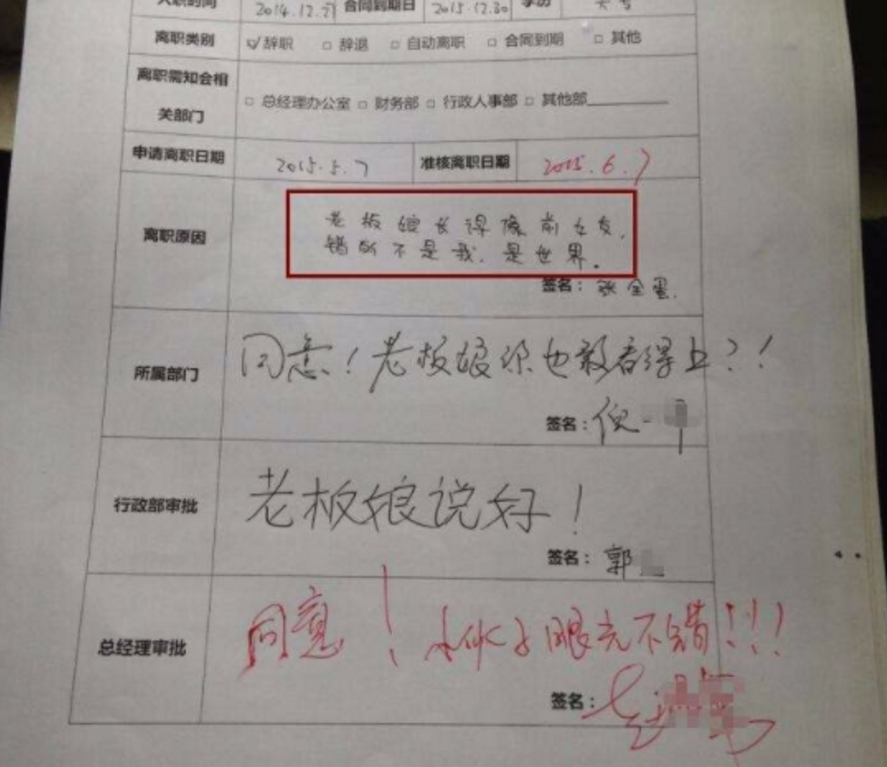 入职时间 2014.12.31 合同到期日 2015.12.30 学历 大专
离职类别 ☑辞职 □ 辞退 □ 自动离职 □ 合同到期 □ 其他
离职需知会相
关部门
□ 总经理办公室 □ 财务部 □ 行政人事部 □ 其他部
申请离职日期 2015.5.7 准核离职日期 2015.6.7
离职原因
老板娘长得像前女友,
错的不是我,是世界。
签名:张全蛋
所属部门
同意!老板娘你也敢看得上?!
签名:倪
行政部审批
老板娘说好!
签名:郭
总经理审批
同意!小伙子眼光不错!!!
签名: